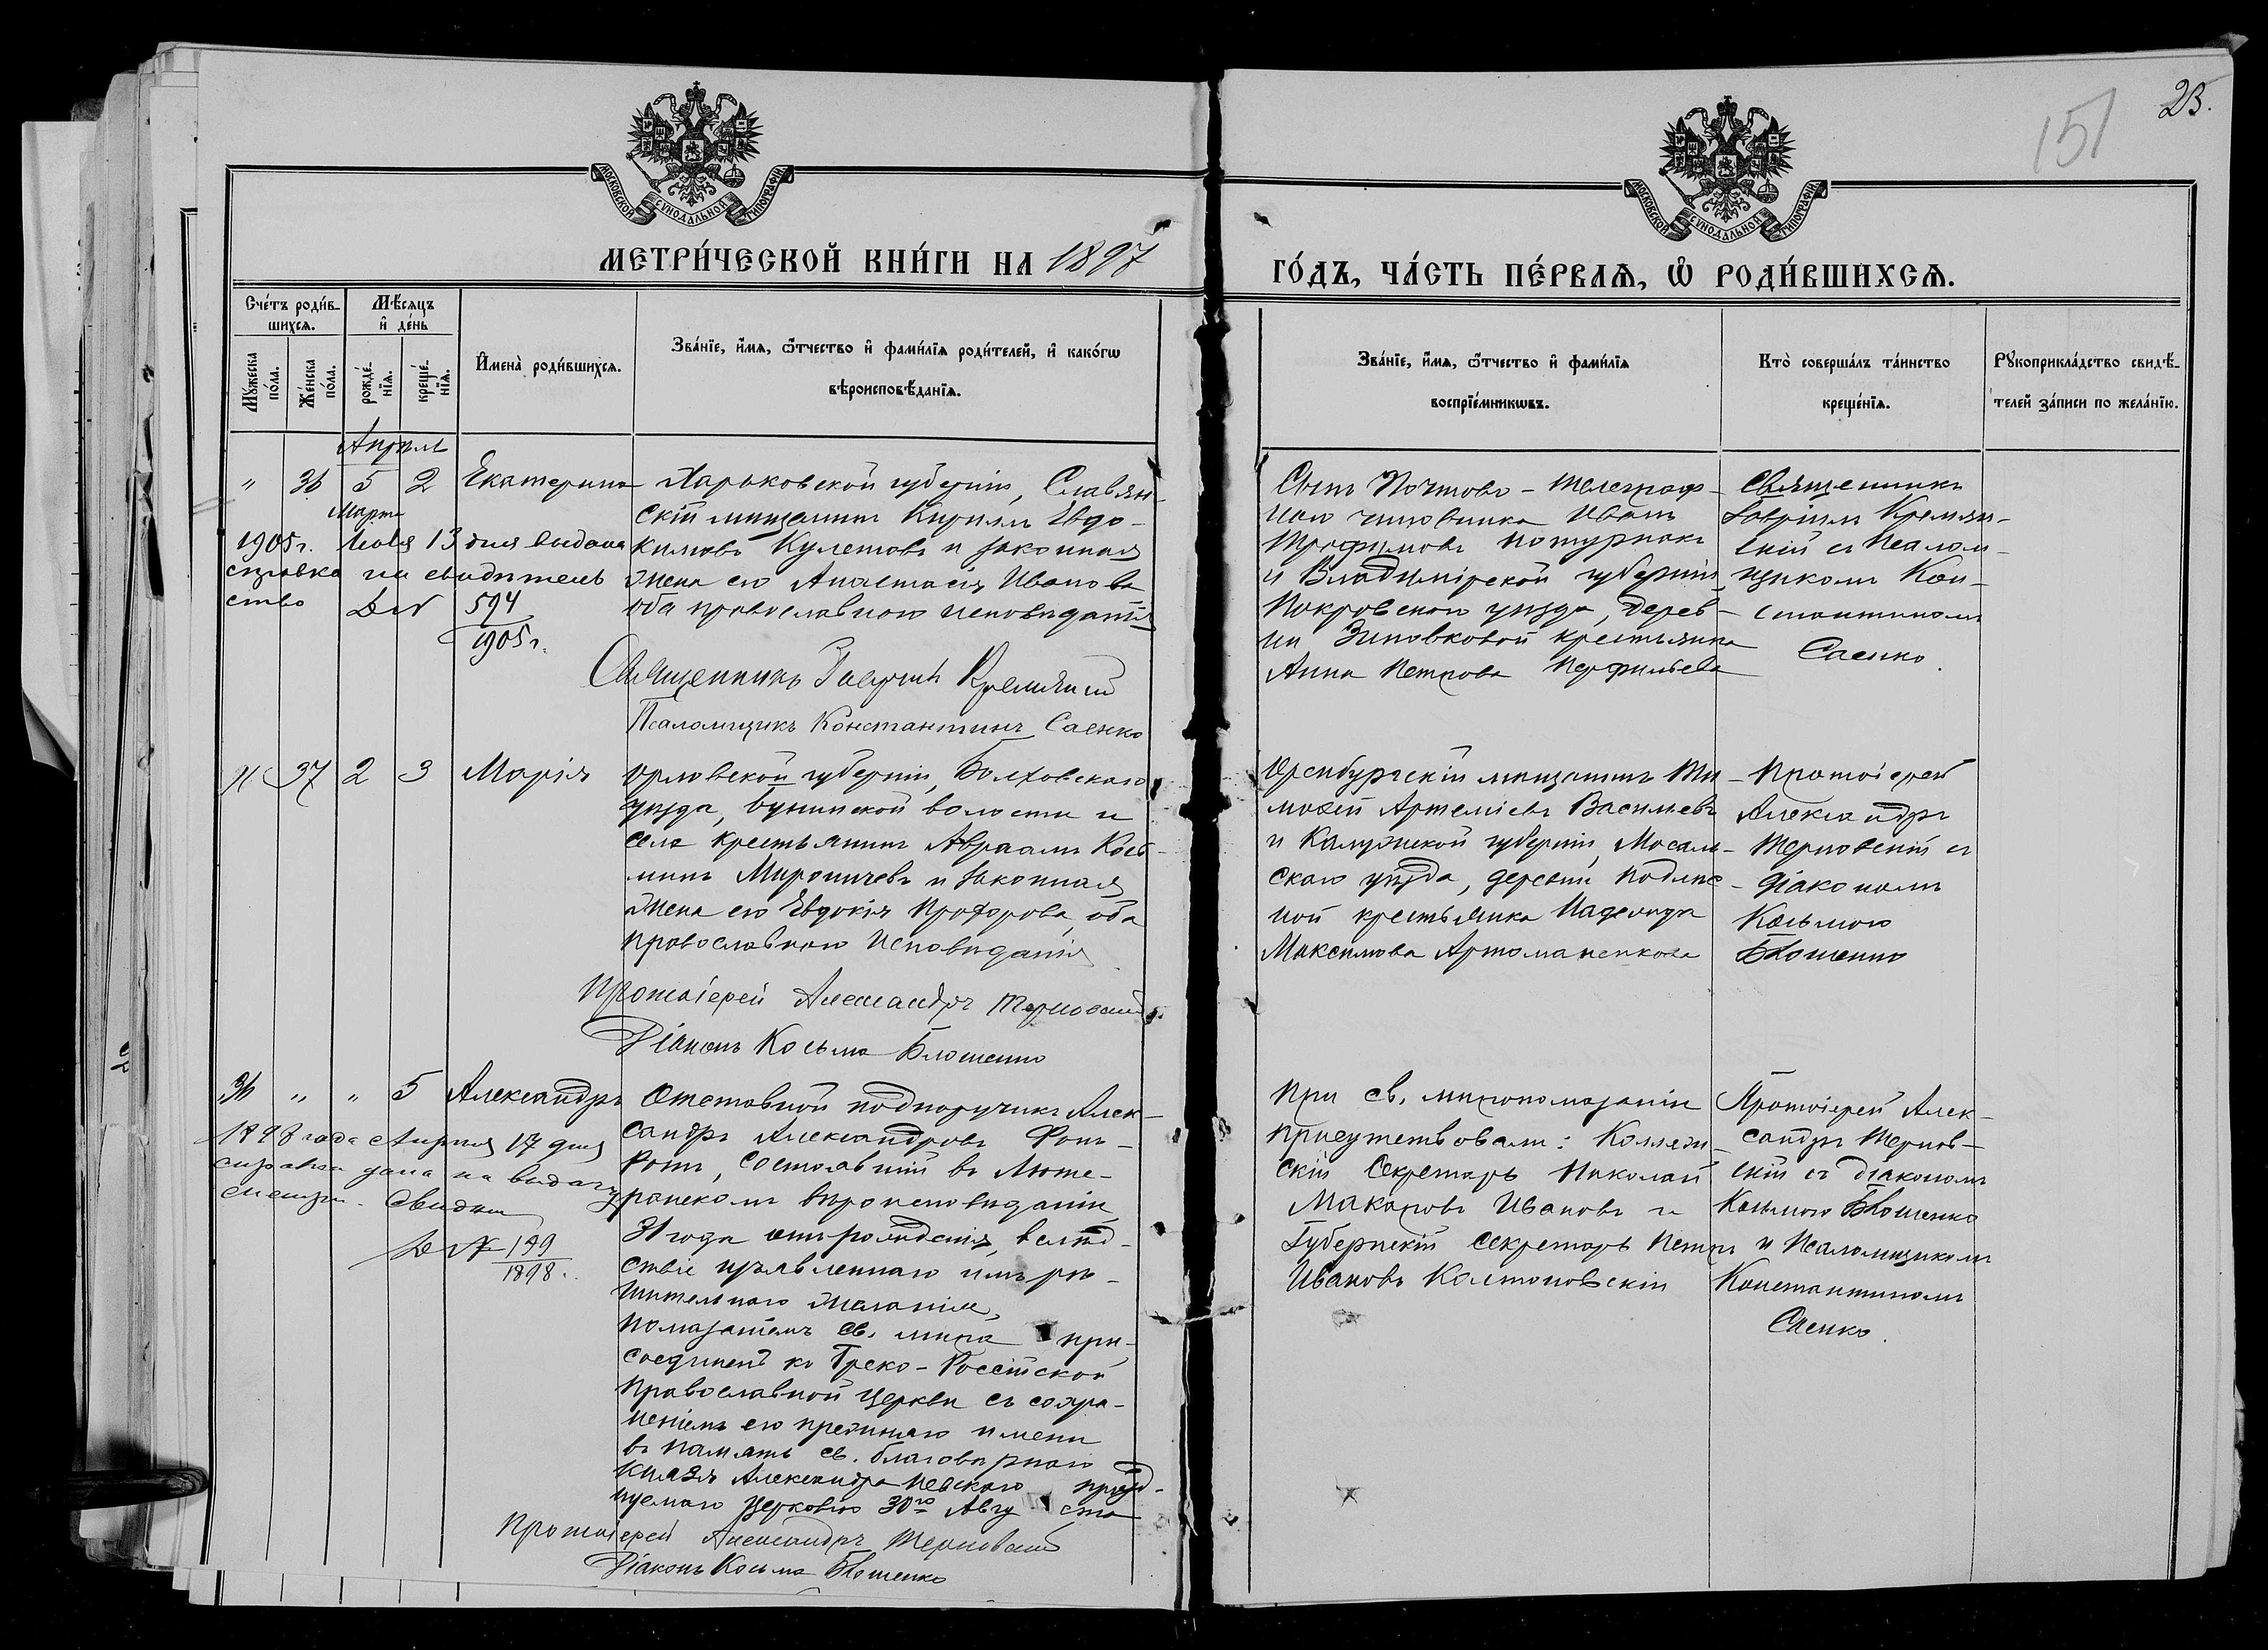 151
23.
МОСКОВСКОЙ СѴНОДАЛЬНОЙ ТИПОГРАФІИ
МОСКОВСКОЙ СѴНОДАЛЬНОЙ ТИПОГРАФІИ
МЕТРИ́ЧЕСКОЙ КНИ́ГИ НА 1897
ГО́ДЪ, ЧА́СТЬ ПЕ́РВАЯ, Ѡ РОДИ́ВШИХСЯ.
Сче́тъ роди́в-
шихся.
Мѣ́сяцъ
и де́нь
Мꙋ́жеска
по́ла.
Же́нска
по́ла.
рожде́-
нїя.
креще́-
нїя.
Имена̀ роди́вшихся.
Зва́нїе, и́мя, ѻ́тчество и фами́лїя роди́телей, и како́гѡ
вѣроисповѣ́данїя.
Зва́нїе, и́мя, ѻ́тчество и фами́лїя
воспрїе́мникѡвъ.
Кто̀ соверша́лъ та́инство
креще́нїя.
Рꙋкоприкла́дство свидѣ́-
телей за́писи по жела́нїю.
Апрѣль
" 36 5 2 Екатерина
Марта
1905 г. Іюля 13 дня выдана
справка на свидѣтель
ство № 594
1905 г.
Харьковской губерніи, Славян-
скій мѣщанинъ Кириллъ Евдо-
кимовъ Кулешовъ и законная
жена его Анастасія Иванова
оба православнаго исповѣданія
Священникъ Гавріилъ Кремянскій
Псаломщикъ Константинъ Саенко
Сынъ Почтово-телеграф-
наго чиновника Иванъ
Трофимовъ Потурнакъ
и Владимірской губерніи
Покровскаго уѣзда, дерев-
ни Зиновковой крестьянка
Анна Петрова Перфильева
Священникъ
Гавріилъ Кремян-
скій съ Псалом-
щикомъ Кон-
стантиномъ
Саенко.
" 37 2 3 Марія
Орловской губерніи, Болховскаго
уѣзда, Бунинской волости и
села крестьянинъ Авраамъ Кось-
минъ Мироничевъ и законная
жена его Евдокія Прохорова, оба
православнаго исповѣданія
Протоіерей Александръ Терновскій
Діаконъ Косьма Блошенко
Оренбургскій мѣщанинъ Ти-
мофей Артеміевъ Васильевъ
и Калужской губерніи, Мосаль-
скаго уѣзда, деревни Подлѣс-
ной крестьянка Надежда
Максимова Артоманенкова
Протоіерей
Александръ
Терновскій съ
діакономъ
Косьмою
Блошенко
36 " " 5 Александръ
1898 года Апрѣля 17 дня
справка дана на выдачу
свидѣт
№ 199
1898.
Отставной подпоручикъ Алек-
сандръ Александровъ Фонъ-
Ротъ, состоявшій въ Люте-
ранскомъ вѣроисповѣданіи,
31 года отъ рожденія, вслѣд-
ствіе изъявленнаго имъ рѣ-
шительнаго желанія,
помазаніемъ св. мѵра при-
соединенъ къ Греко-Россійской
Православной Церкви съ сохра-
неніемъ его прежняго имени
въ память св. благовѣрнаго
Князя Александра Невскаго празд-
нуемаго Церковію 30го Августа
Протоіерей Александръ Терновскій
Діаконъ Косьма Блошенко
При св. мѵропомазаніи
присутствовали: Коллеж-
скій Секретарь Николай
Макаровъ Ивановъ и
Губернскій секретарь Петръ
Ивановъ Колтоновскій
Протоіерей Алек-
сандръ Тернов-
скій съ діакономъ
Косьмою Блошенко
и Псаломщикомъ
Константиномъ
Саенко.